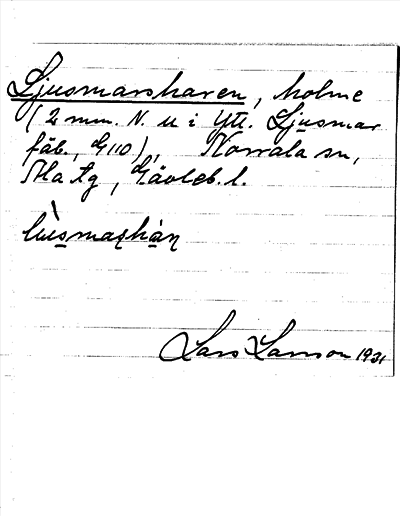 Ljusmarsharen, holme
(2 mm. N. u i Ytt. Ljusmar
fäb., G110), Norrala sn,
Ala tg, Gävleb. l.
Lars Larsson 1931